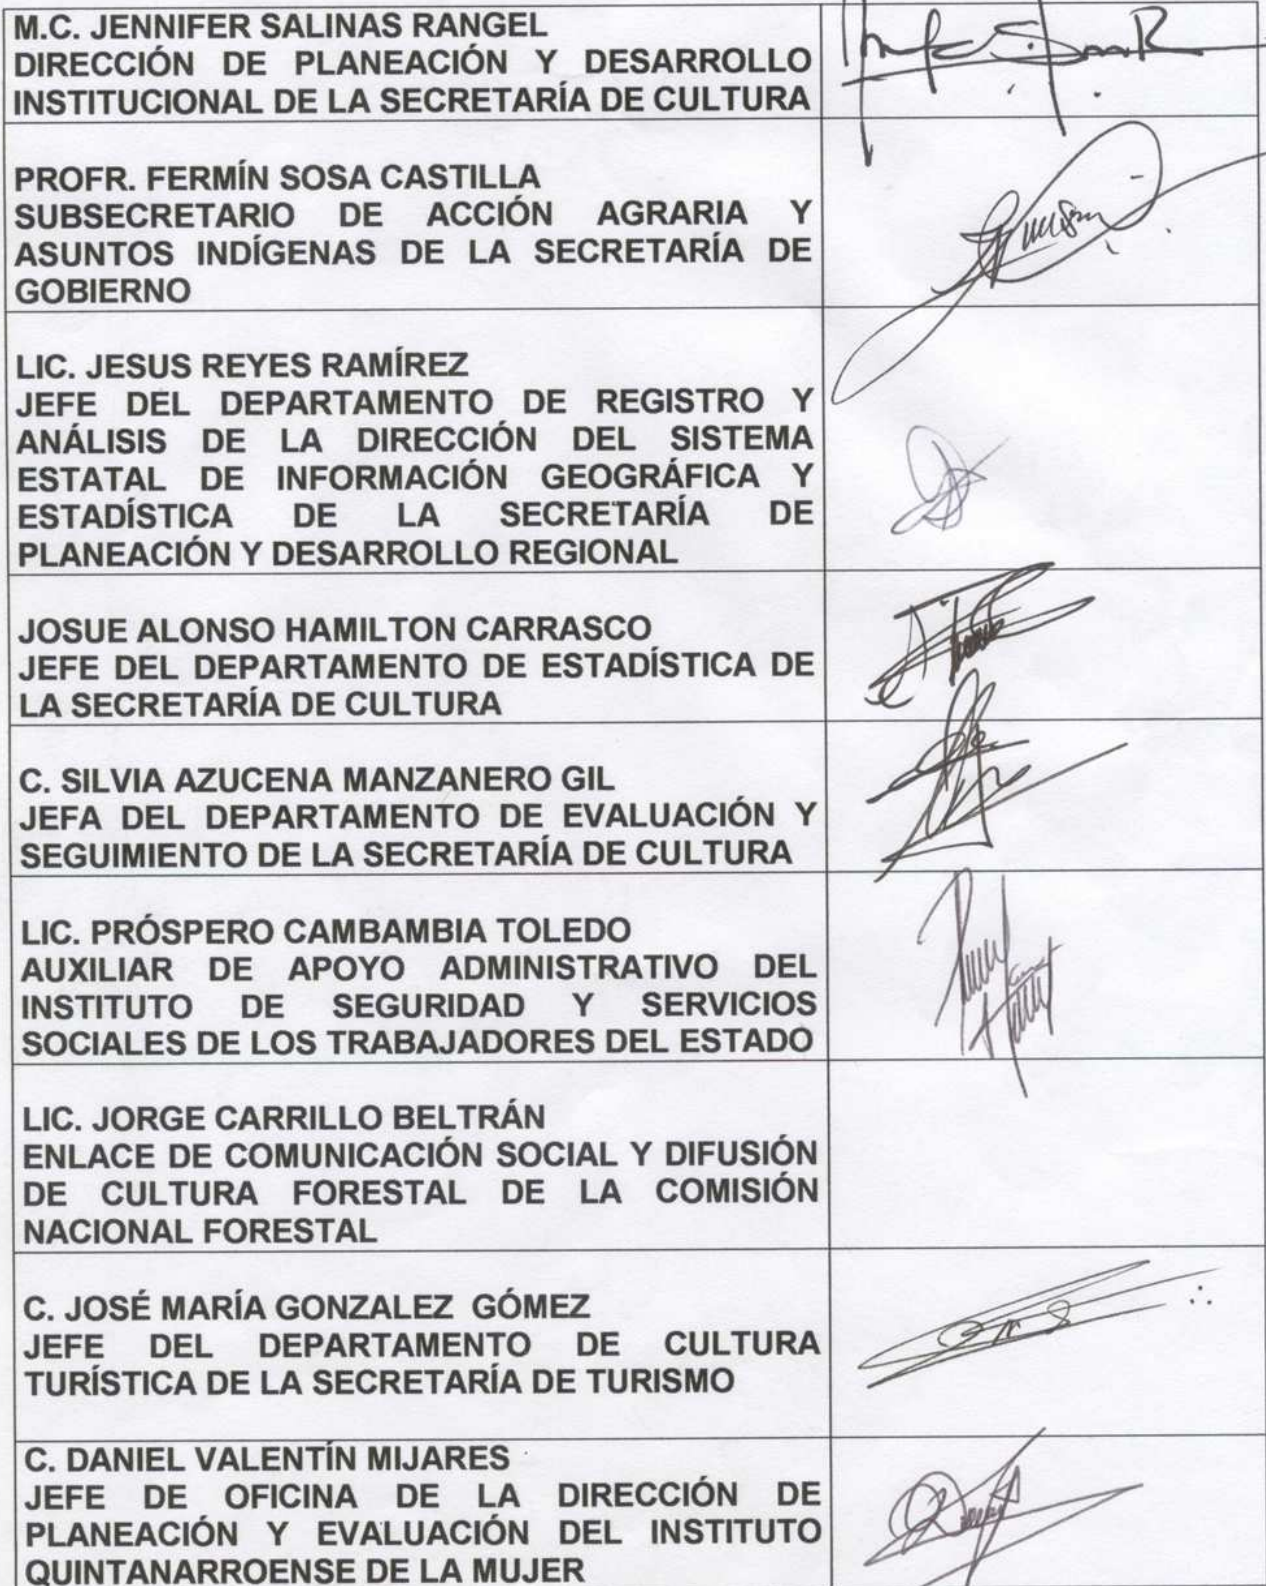 M.C. JENNIFER SALINAS RANGEL
DIRECCIÓN DE PLANEACIÓN Y DESARROLLO
INSTITUCIONAL DE LA SECRETARÍA DE CULTURA
PROFR. FERMÍN SOSA CASTILLA
SUBSECRETARIO DE ACCIÓN AGRARIA Y
ASUNTOS INDÍGENAS DE LA SECRETARÍA DE
GOBIERNO
LIC. JESUS REYES RAMÍREZ
JEFE DEL DEPARTAMENTO DE REGISTRO Y
ANÁLISIS DE LA DIRECCIÓN DEL SISTEMA
ESTATAL DE INFORMACIÓN GEOGRÁFICA Y
ESTADÍSTICA DE LA SECRETARÍA DE
PLANEACIÓN Y DESARROLLO REGIONAL
JOSUE ALONSO HAMILTON CARRASCO
JEFE DEL DEPARTAMENTO DE ESTADÍSTICA DE
LA SECRETARÍA DE CULTURA
C. SILVIA AZUCENA MANZANERO GIL
JEFA DEL DEPARTAMENTO DE EVALUACIÓN Y
SEGUIMIENTO DE LA SECRETARÍA DE CULTURA
LIC. PRÓSPERO CAMBAMBIA TOLEDO
AUXILIAR DE APOYO ADMINISTRATIVO DEL
INSTITUTO DE SEGURIDAD Y SERVICIOS
SOCIALES DE LOS TRABAJADORES DEL ESTADO
LIC. JORGE CARRILLO BELTRÁN
ENLACE DE COMUNICACIÓN SOCIAL Y DIFUSIÓN
DE CULTURA FORESTAL DE LA COMISIÓN
NACIONAL FORESTAL
C. JOSÉ MARÍA GONZALEZ GÓMEZ
JEFE DEL DEPARTAMENTO DE CULTURA
TURÍSTICA DE LA SECRETARÍA DE TURISMO
C. DANIEL VALENTÍN MIJARES
JEFE DE OFICINA DE LA DIRECCIÓN DE
PLANEACIÓN Y EVALUACIÓN DEL INSTITUTO
QUINTANARROENSE DE LA MUJER